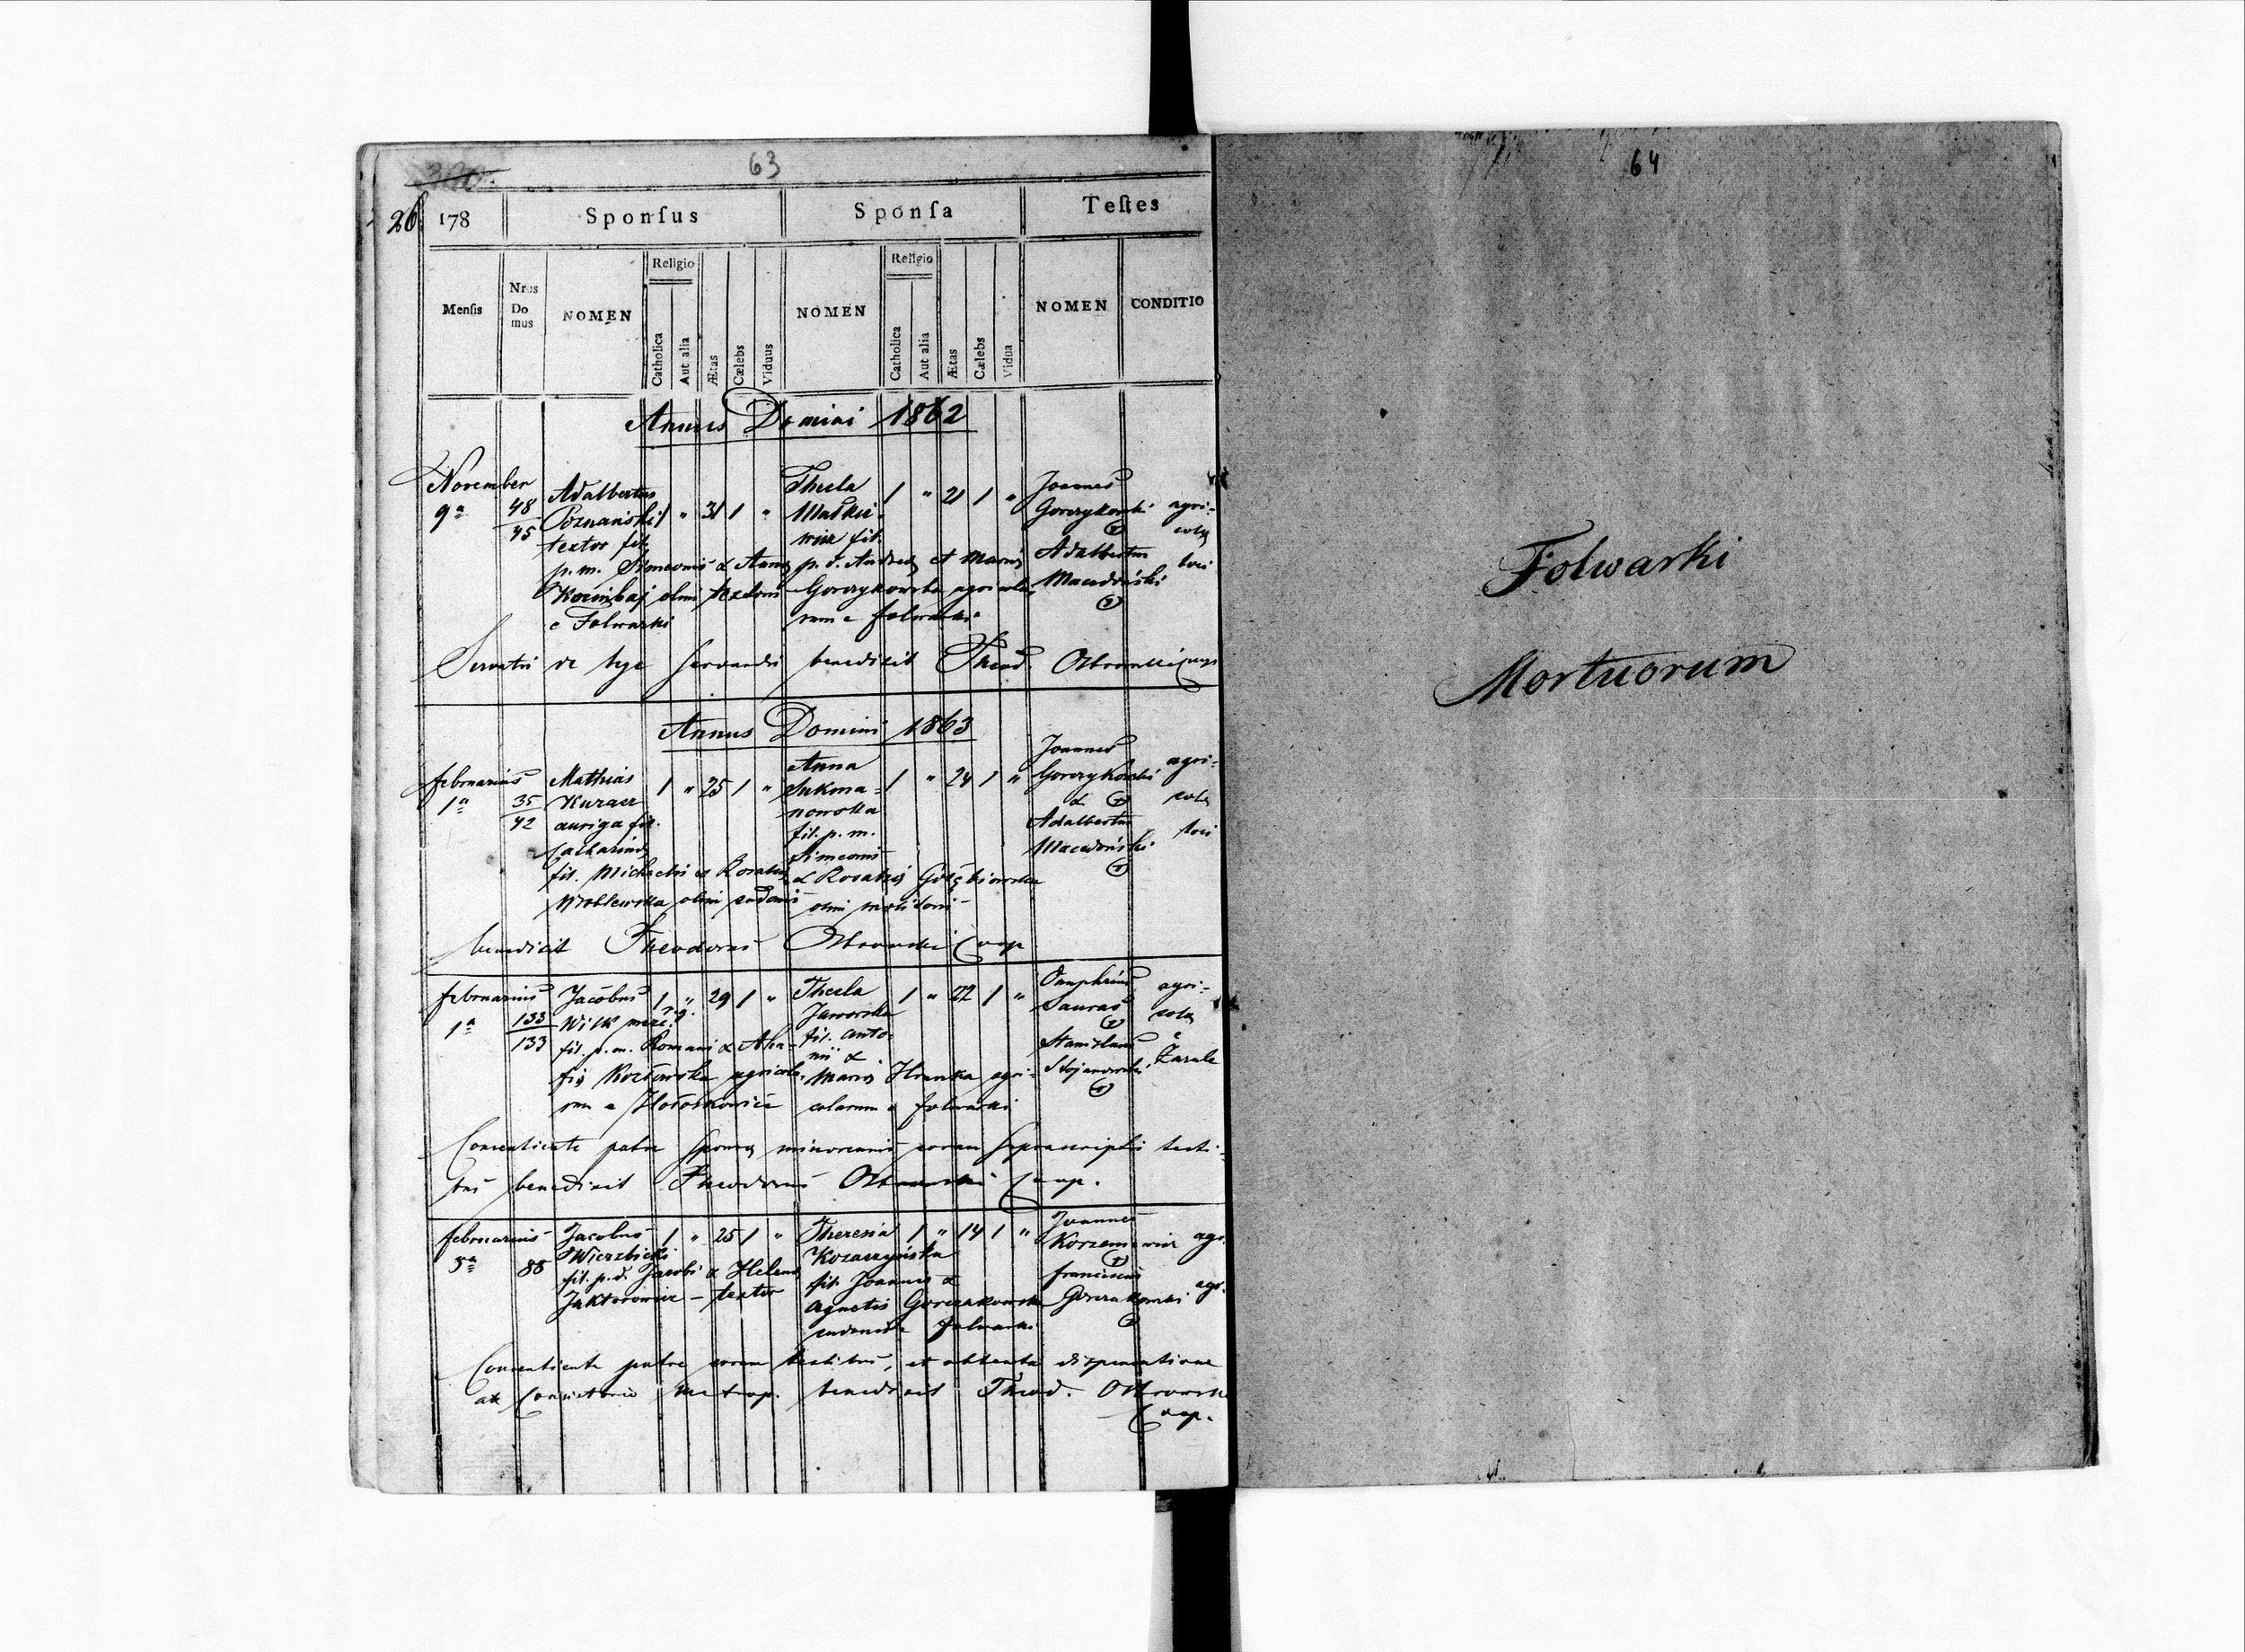 300.
63
26 178 Sponſus Sponſa Teſtes
Menſis Nrus Do mus NOMEN Religio Catholica Aut alia Ætas Cælebs Viduus NOMEN Religio Catholica Aut alia Ætas Cælebs Vidua NOMEN CONDITIO
Annus Domini 1862
November
9a
48
45
Adalbertus
Poznański 1 " 31 1 "
textor fil.
p. m. Simeonis & Annæ
olim textoris
e Folwarki
Thecla 1 " 21 1 "
Maćkie-
wicz fil.
p. d. Andreæ et Mariæ
Gorczykowska agricola-
rum e folwarki
Joannes
Gorczykowski
Adalbertus
Macedoński
agri-
colæ
loci
Servatis de lege servandis benedixit Theod. Ostrowski Coop
Annus Domini 1863
februarius
1a
35
42
Mathias
Kuracz 1 " 25 1 "
auriga fil.
Catharinæ
fil. Michaelis et Rosaliæ
Wroblewska olim sudoris
Anna
Sukma-
nowska 1 " 24 1 "
fil. p. m.
Simeonis
& Rosaliæ Gołębiowska
olim molitoris
Joannes
Gorczykowski
&
Adalbertus
Macedoński
agri-
colæ
loci
benedixit Theodorus Ostrowski Coop
februarius
1a
133
133
Jacobus 1 " 29 1 "
Wilk
fil. p. m. Romani & Aha-
fiæ Kozłowska agricola-
rum e Hołoskowice
Thecla 1 " 22 1 "
Jaworska
fil. Anto-
nii &
Mariæ Hranka agri-
colarum e folwarki
Onuphrius
Sauras
Stanislaus
Stojanowski
agri-
colæ
e
Żarule
Consentiente patre sponsæ minorennis coram suprascriptis testi-
bus benedixit Theodorus Ostrowski Coop.
februarius
5a
88
Jacobus 1 " 25 1 "
Wierzbicki
fil. p. d. Jacobi & Helenæ
Jaktorowicz - textor
Theresia 1 " 14 1 "
Kozaczyńska
fil. Joannis &
Agnetis Gorczakowska
e folwarki
Joannes
Korzeniewicz
franciscus
Gorczakowski
agr.
agr.
Consentiente patre coram testibus, et obtenta dispensatione
ab Consistorio Metrop. benedixit Theod. Ostrowski
Coop.
64
Folwarki
Mortuorum